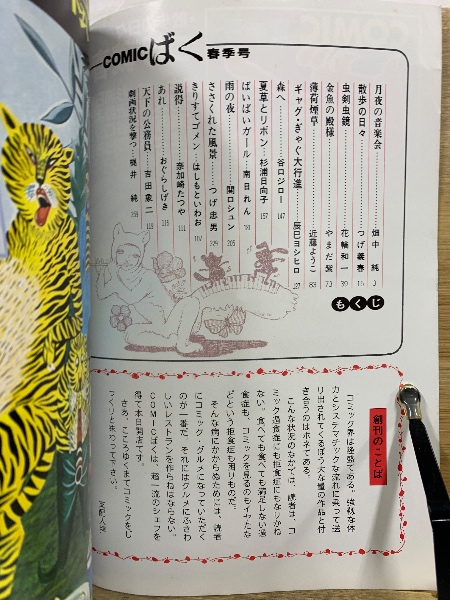 COMICばく春季号
もくじ
月夜の音楽会……畑中 純 3
散歩の日々……つげ義春 15
虫剣虫鏡……花輪和一 39
金魚の殿様……やまだ紫 70
薄荷煙草……近藤ようこ 83
ギャグ・ぎゃぐ大行進……辰巳ヨシヒロ 127
森へ……谷口ジロー 147
夏草とリボン……杉浦日向子 157
ばいばいガール……南日れん 181
雨の夜……関口シュン 205
ささくれた風景……つげ忠男 229
きりすてゴメン……はしもといわお 107
説得……奈加崎たつや 111
あれ……おぐらしげき 115
天下の公務員……吉田象二 119
劇画状況を撃つ……桜井 純 159
創刊のことば
コミック界は怪物である。強烈な体
力とシステマチックな流れに乗って送
り出されてくるぼう大な量の作品と付
き合うのはホネである。
こんな状況のなかでは、読者は、コ
ミック過食症にも拒食症にもなりかね
ない。食べても食べても満足しない過
食症も、コミックを見るのもイヤだな
どという拒食症も困りものだ。
そんな病にかからぬためには、読者
にコミック・グルメになっていただく
のが一番だ。それにはグルメにふさわ
しいレストランを作らねばならない。
COMICばくは、超一流のシェフを
得て本日開店です。
さあ、こころゆくまでコミックをじ
っくりと味わって下さい。